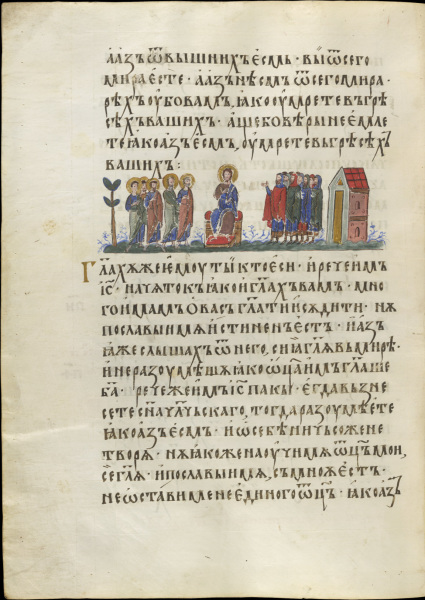 а азъ ѿ вышнихъ есмь · вы ѿ сего
мира есте · а азъ нѣсмъ ѿ сего мира ·
рѣхъ оубо вамъ, ꙗко оумрете въ грѣ
сѣхъ вашихъ · аще бо вѣры не емле
те ꙗко азъ есмъ, оумрете въ грѣсѣхъ
вашихъ :
Гл҃ахѫ же емоу ты кто еси · и рече имъ
і҃с · начѧтокъ ꙗко и гл҃ахъ вамъ · мно
го имамъ о васъ гл҃ати и сѫдити · нѫ
пославыи мѧ истиненъ естъ · и азъ
ꙗже слышахъ ѿ него, сиа гл҃ѧ въ мирѣ ·
и не разоумѣшѫ ꙗко ѡц҃а имъ гл҃аше
б҃а · рече же имъ і҃с пакы · егда възне
сете сн҃а чл҃чьскаго, тогда разоумѣете
ꙗко азъ есмъ · и ѡ себѣ ничьсоже не
творѧ · нѫ ꙗкоже наоучи мѧ ѡц҃ъ мои,
се гл҃ѧ · и пославыи мѧ, съ мноѫ естъ ·
не ѡстави мене единого ѡц҃ъ · ꙗко азъ